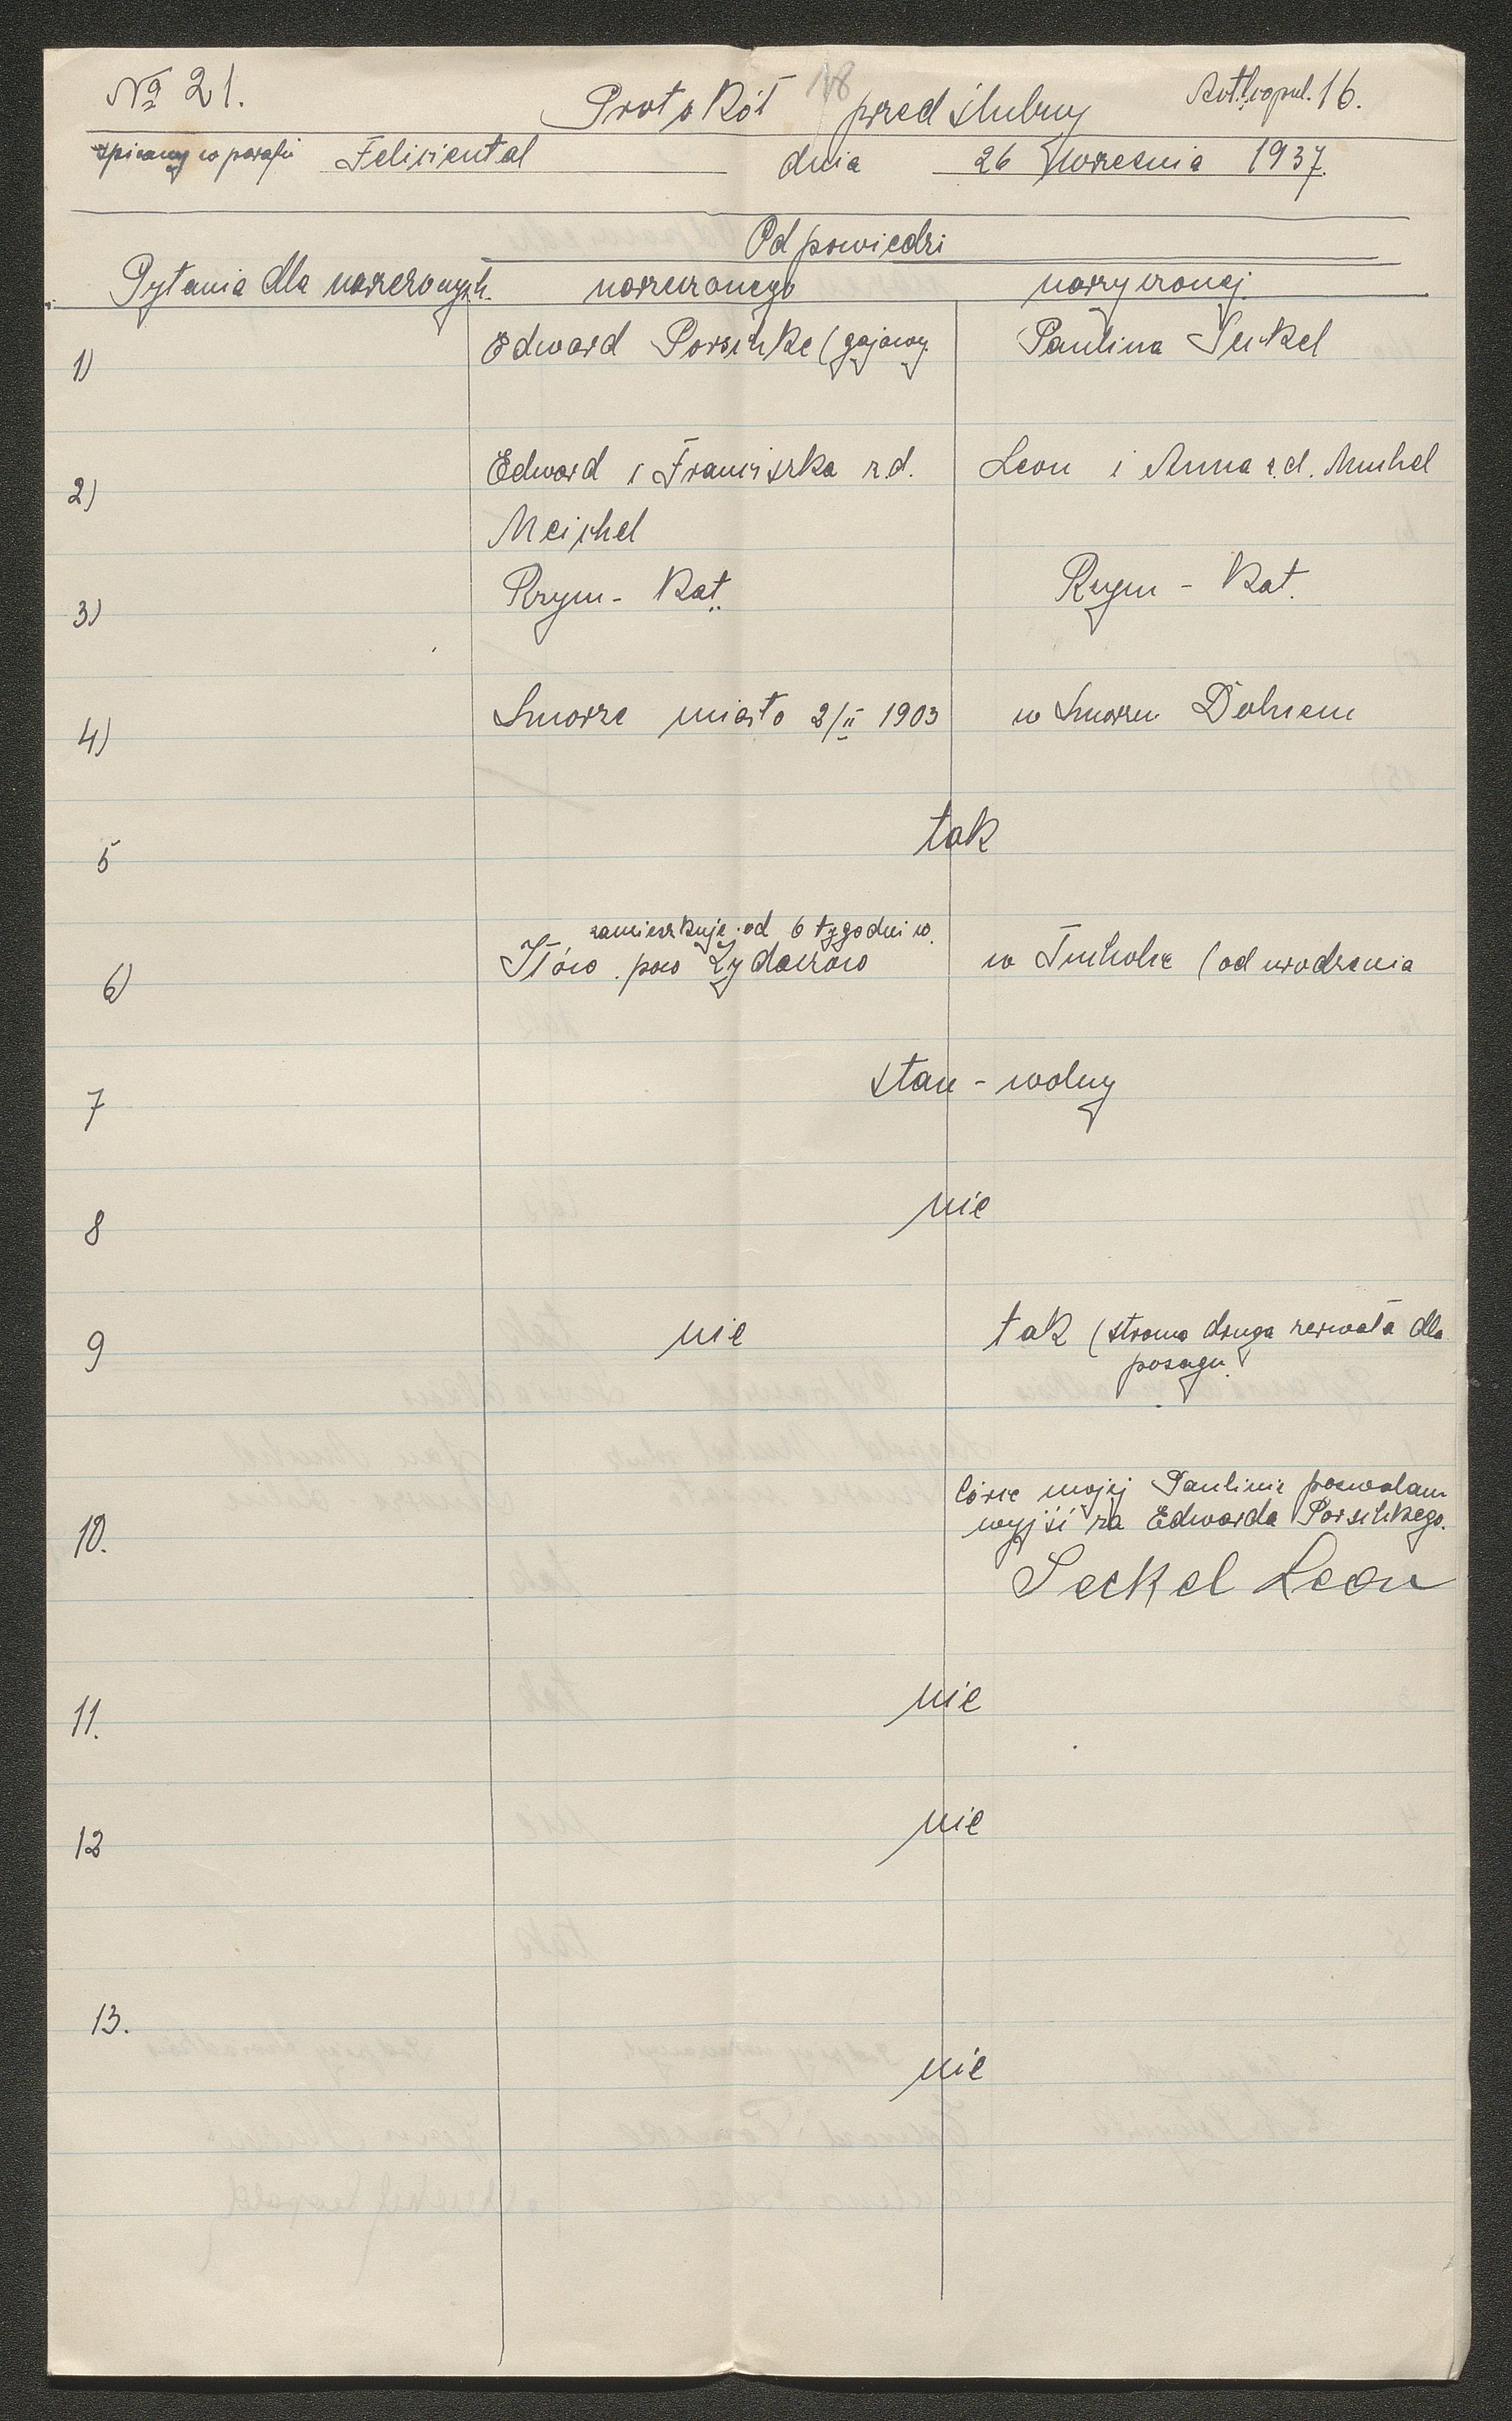 № 21.
18
Protokół przedślubny
16.
spisany w parafii Feliciental dnia 26 Września 1937.
Odpowiedzi
Pytania dla narzeczonych. narzeczonego narzyczonej
1) Edward Porschke (gajowy. Paulina Seckel
2) Edward i Franciszka z.d. Leon i Anna z.d. Muchel
Meichel
3) Rzym-Kat. Rzym-Kat.
4) Smorze miasto 2/II 1903 w Smorzu Dolnem
5 tak
zamieszkuje od 6 tygodni w.
6) Iłów. pow Żydaczów w Tucholce (od urodzenia
7 stan-wolny
8 nie
9 nie tak (strona druga zerwała dla
posagu.
Córce mojej Paulinie pozwalam
10. wyjść za Edwarda Porschkego.
Seckel Leon
11. nie
12 nie
13.
nie